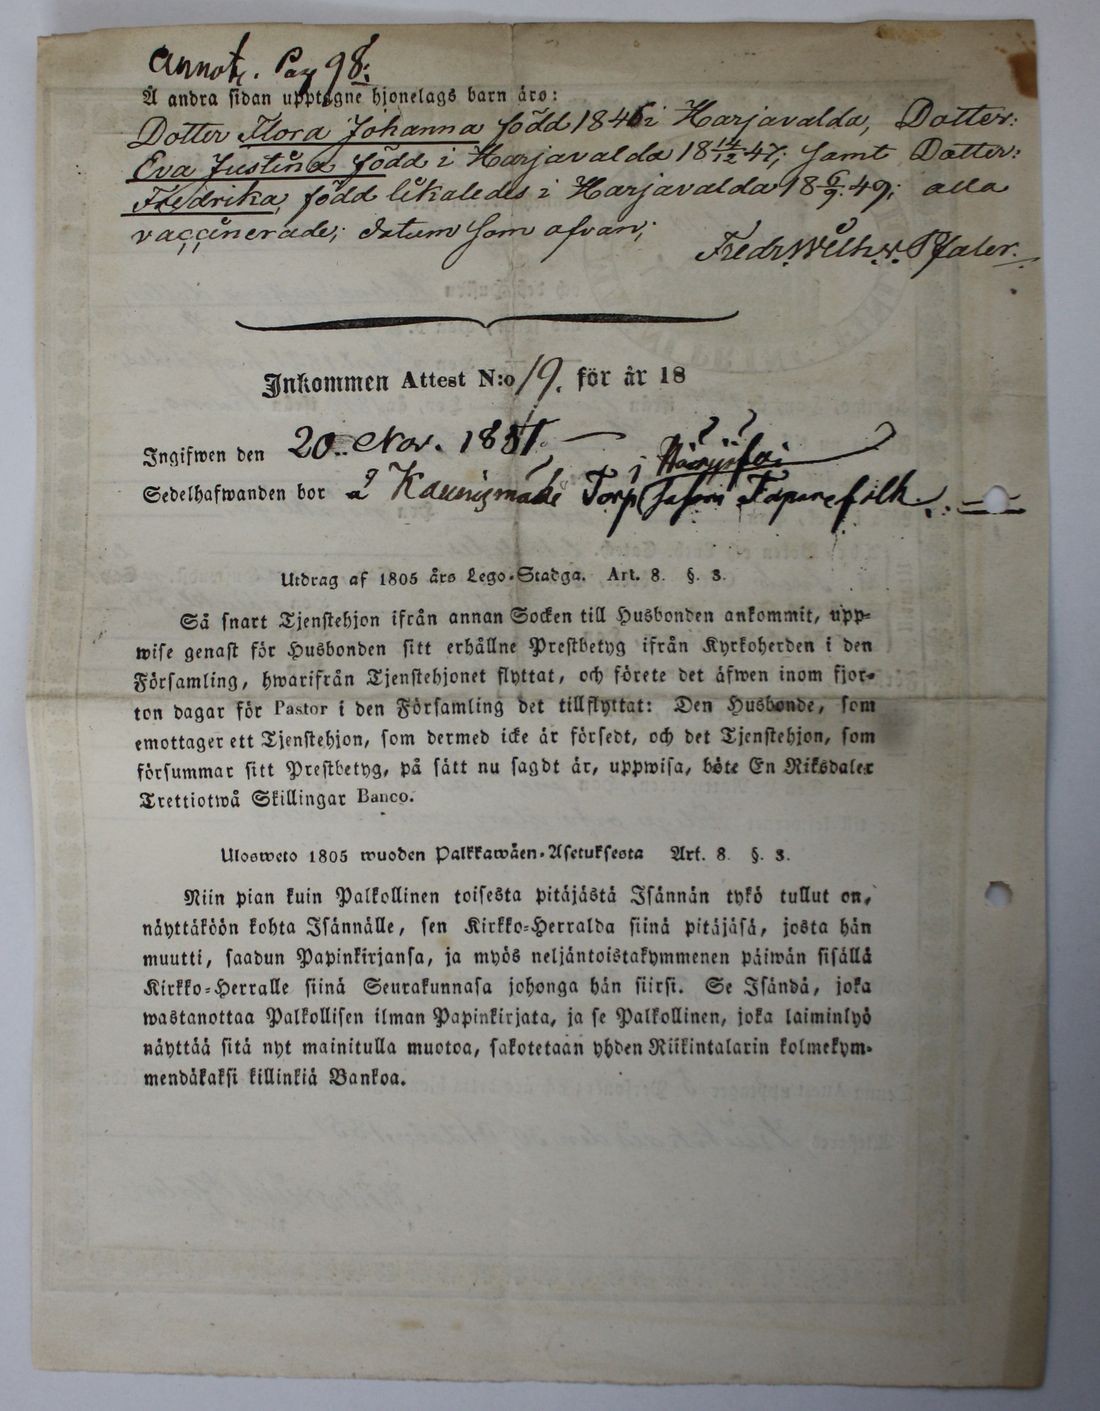 Annot. Pag 98:
Å andra sidan upptagne hjonelags barn äro:
Dotter Flora Johanna född 1845 i Harjavalda, Dotter:
Eva Justina född i Harjavalda 18 14/12 47; samt Dotter:
Fredrika, född likaledes i Harjavalda 18 6/9 49; alla
vaccinerade; datum som ofvan;
Fredr. Wilh. v. Pfaler.
Inkommen Attest N:o 19. för år 18
Ingifwen den 20. Nov. 1851.
Sedelhafwanden bor å Kaunismäki Torp såsom
Utdrag af 1805 års Lego-Stadga. Art. 8. §. 3.
Så snart Tjenstehjon ifrån annan Socken till Husbonden ankommit, upp-
wise genast för Husbonden sitt erhållne Prestbetyg ifrån Kyrkoherden i den
Församling, hwarifrån Tjenstehjonet flyttat, och förete det äfwen inom fjor-
ton dagar för Pastor i den Församling det tillflyttat: Den Husbonde, som
emottager ett Tjenstehjon, som dermed icke är försedt, och det Tjenstehjon, som
försummar sitt Prestbetyg, på sätt nu sagdt är, uppwisa, böte En Riksdaler
Trettiotwå Skillingar Banco.
Ulosweto 1805 wuoden Palkkawäen-Asetuksesta Art. 8. §. 3.
Niin pian kuin Palkollinen toisesta pitäjästä Isännän tykö tullut on,
näyttäköön kohta Isännälle, sen Kirkko-Herralda siinä pitäjäsä, josta hän
muutti, saadun Papinkirjansa, ja myös neljäntoistakymmenen päiwän sisällä
Kirkko-Herralle siinä Seurakunnasa johonga hän siirsi. Se Isändä, joka
wastanottaa Palkollisen ilman Papinkirjata, ja se Palkollinen, joka laiminlyö
näyttää sitä nyt mainitulla muotoa, sakotetaan yhden Riikintalarin kolmekym-
mendäkaksi killinkiä Bankoa.